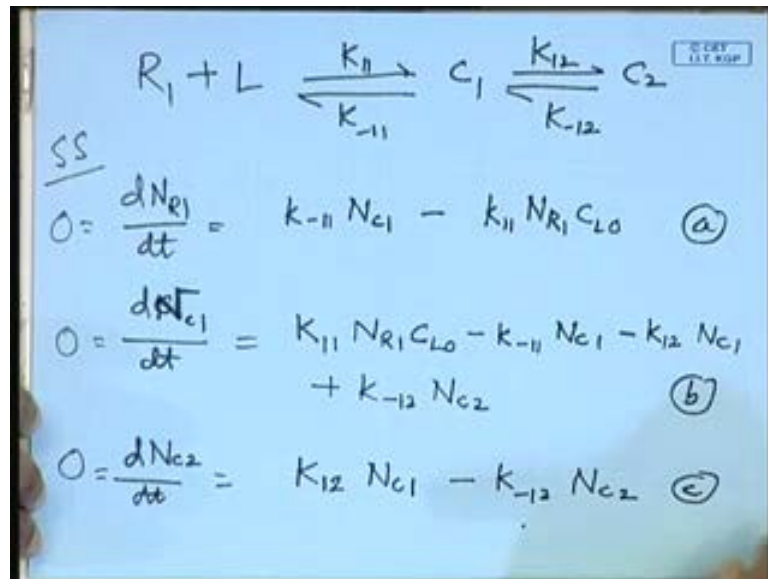 R₁ + L ⇌ C₁ ⇌ C₂
K₁₁ K₁₂
K₋₁₁ K₋₁₂
© CET
I.I.T. KGP
SS
0 = dN_R1/dt = k₋₁₁ N_C1 − k₁₁ N_R1 C_L0 (a)
0 = dN_C1/dt = K₁₁ N_R1 C_L0 − k₋₁₁ N_C1 − k₁₂ N_C1
+ k₋₁₂ N_C2 (b)
0 = dN_C2/dt = K₁₂ N_C1 − K₋₁₂ N_C2 (c)